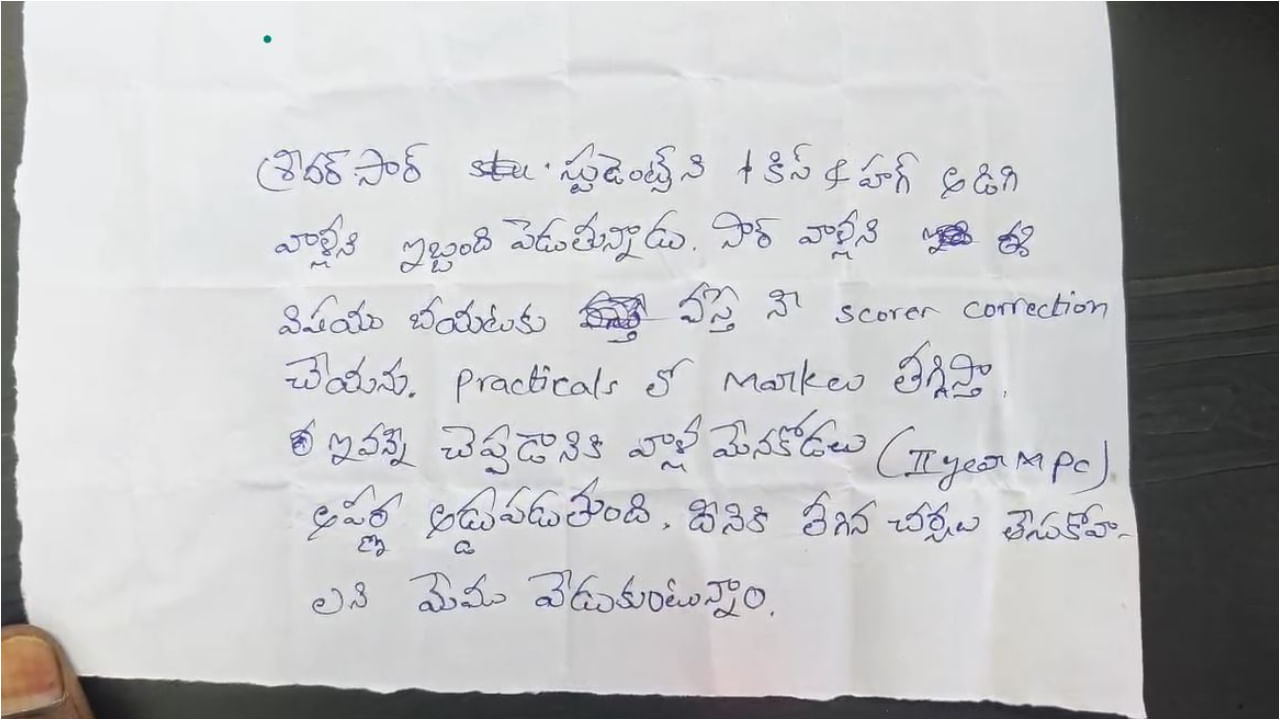 శ్రీదర్ సార్ స్టూడెంట్స్ ని కిస్ & హగ్ అడిగి
వాళ్లని ఇబ్బంది పెడుతున్నాడు. సార్ వాళ్లని ఈ
విషయం బయటకు వస్తే నీ scorer correction
చేయను. Practicals లో Markeu తీగ్గిస్తా.
ఇవన్నీ చెప్పడానికి వాళ్ల మేనకోడలు (II year MPC)
అపర్ణ అడ్డుపడుతుంది. దీనికి తీగిన చర్యలు తీసుకోవా-
లని మేము వేడుకుంటున్నాం.